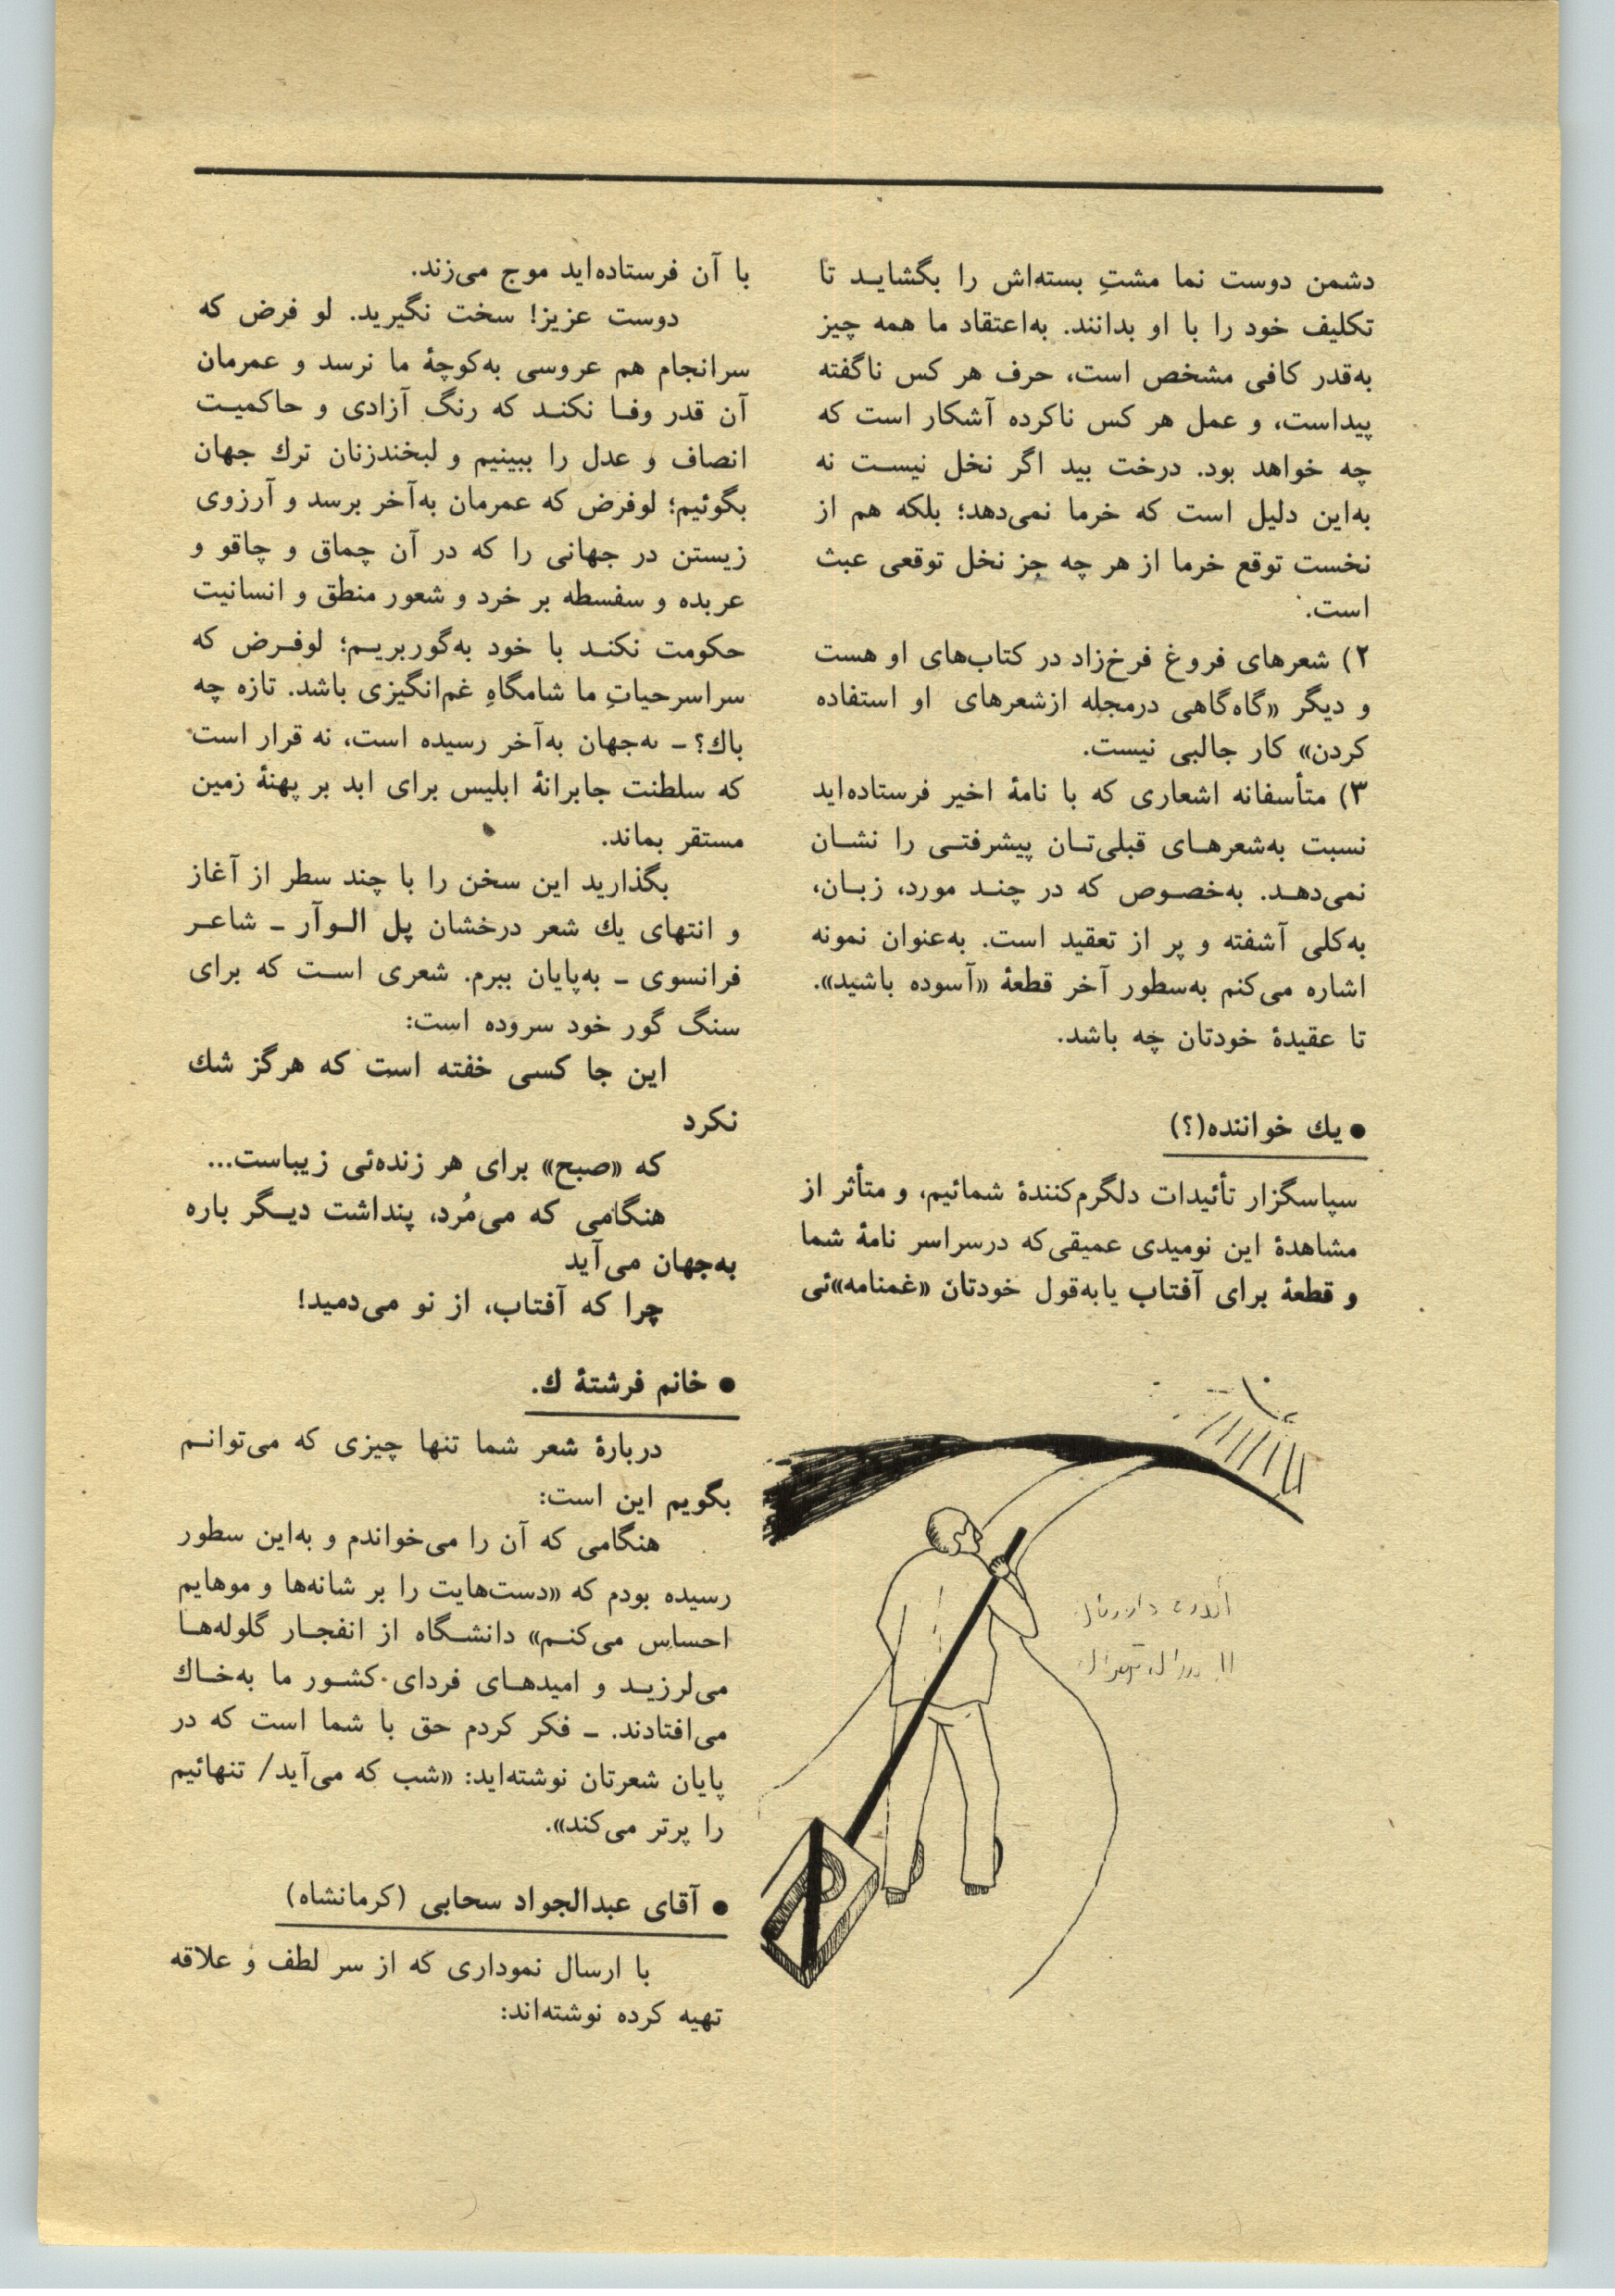 دشمن دوست نما مشتِ بسته‌اش را بگشاید تا
تکلیف خود را با او بدانند. به‌اعتقاد ما همه چیز
به‌قدر کافی مشخص است، حرف هر کس ناگفته
پیداست، و عمل هر کس ناکرده آشکار است که
چه خواهد بود. درخت بید اگر نخل نیست نه
به‌این دلیل است که خرما نمی‌دهد؛ بلکه هم از
نخست توقع خرما از هر چه جز نخل توقعی عبث
است.
۲) شعرهای فروغ فرخ‌زاد در کتاب‌های او هست
و دیگر «گاه‌گاهی درمجله ازشعرهای او استفاده
کردن» کار جالبی نیست.
۳) متأسفانه اشعاری که با نامهٔ اخیر فرستاده‌اید
نسبت به‌شعرهای قبلی‌تان پیشرفتی را نشان
نمی‌دهد. به‌خصوص که در چند مورد، زبان،
به‌کلی آشفته و پر از تعقید است. به‌عنوان نمونه
اشاره می‌کنم به‌سطور آخر قطعهٔ «آسوده باشید».
تا عقیدهٔ خودتان چه باشد.
● یك خواننده(؟)
سپاسگزار تأئیدات دلگرم‌کنندهٔ شمائیم، و متأثر از
مشاهدهٔ این نومیدی عمیقی‌که درسراسر نامهٔ شما
و قطعهٔ برای آفتاب یابه‌قول خودتان «غمنامه»ئی
با آن فرستاده‌اید موج می‌زند.
دوست عزیز! سخت نگیرید. لو فرض که
سرانجام هم عروسی به‌کوچهٔ ما نرسد و عمرمان
آن قدر وفا نکند که رنگ آزادی و حاکمیت
انصاف و عدل را ببینیم و لبخندزنان ترك جهان
بگوئیم؛ لوفرض که عمرمان به‌آخر برسد و آرزوی
زیستن در جهانی را که در آن چماق و چاقو و
عربده و سفسطه بر خرد و شعور منطق و انسانیت
حکومت نکند با خود به‌گوربریم؛ لوفرض که
سراسرحیاتِ ما شامگاهِ غم‌انگیزی باشد. تازه چه
باك؟ ـ نه‌جهان به‌آخر رسیده است، نه قرار است
که سلطنت جابرانهٔ ابلیس برای ابد بر پهنهٔ زمین
مستقر بماند.
بگذارید این سخن را با چند سطر از آغاز
و انتهای یك شعر درخشان پل الوآر ـ شاعر
فرانسوی ـ به‌پایان ببرم. شعری است که برای
سنگ گور خود سروده است:
این جا کسی خفته است که هرگز شك
نکرد
که «صبح» برای هر زنده‌ئی زیباست...
هنگامی که می‌مُرد، پنداشت دیگر باره
به‌جهان می‌آید
چرا که آفتاب، از نو می‌دمید!
● خانم فرشتهٔ ك.
دربارهٔ شعر شما تنها چیزی که می‌توانم
بگویم این است:
هنگامی که آن را می‌خواندم و به‌این سطور
رسیده بودم که «دست‌هایت را بر شانه‌ها و موهایم
احساس می‌کنم» دانشگاه از انفجار گلوله‌ها
می‌لرزید و امیدهای فردای کشور ما به‌خاك
می‌افتادند. ـ فکر کردم حق با شما است که در
پایان شعرتان نوشته‌اید: «شب که می‌آید/ تنهائیم
را پرتر می‌کند».
● آقای عبدالجواد سحابی (کرمانشاه)
با ارسال نموداری که از سر لطف و علاقه
تهیه کرده نوشته‌اند: